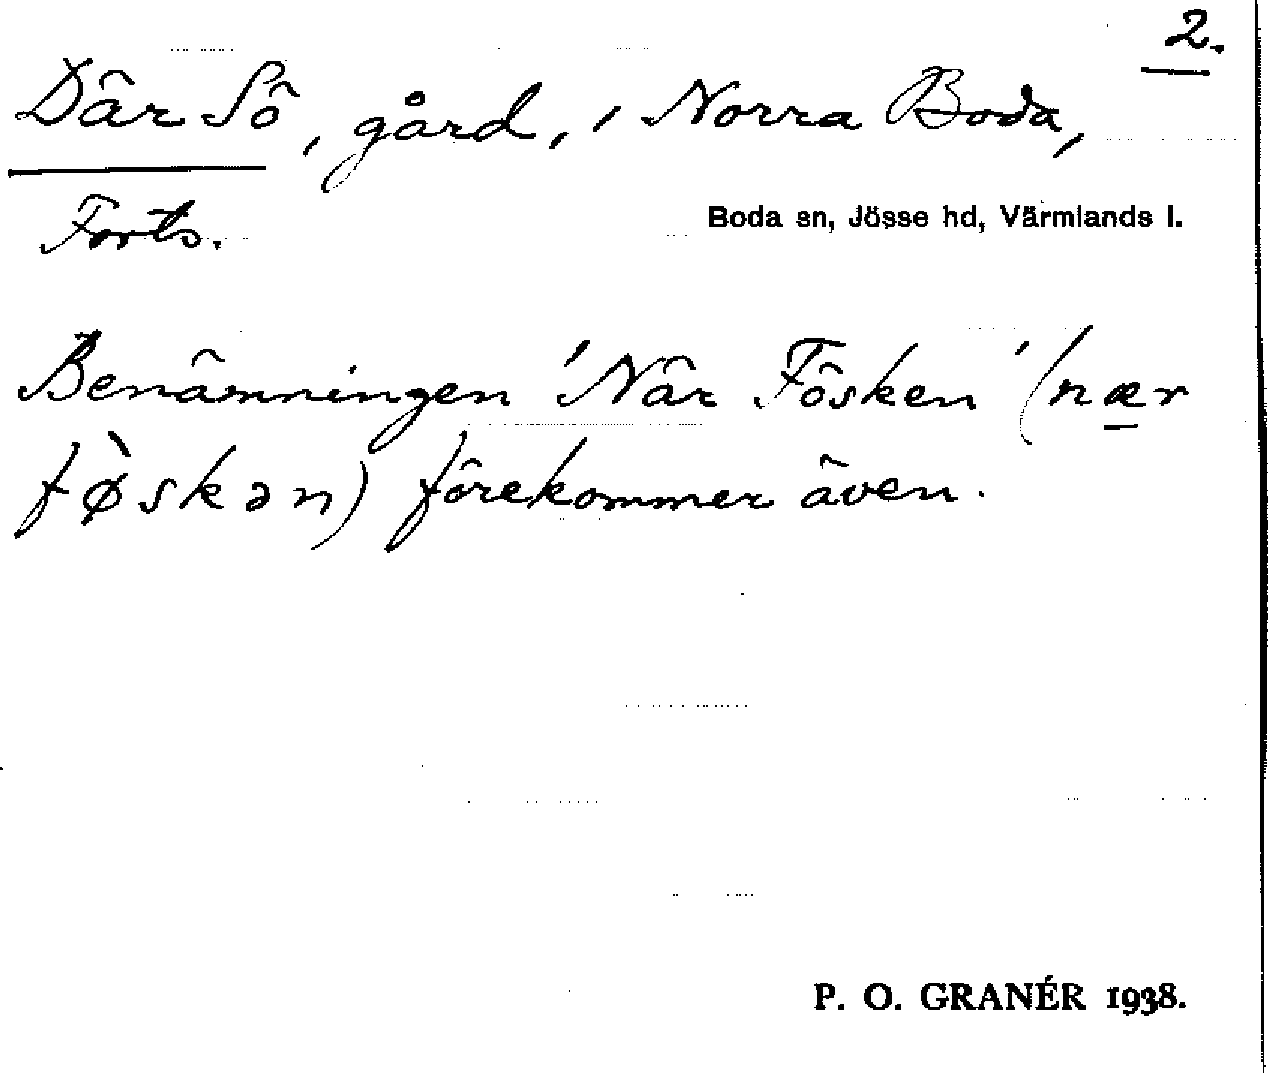 2.
Där Sö, gård, i Norra Boda,
Forts.
Boda sn, Jösse hd, Värmlands l.
Benämningen 'När Fösken' (nær
fø̀skən) förekommer även.
P. O. GRANÉR 1938.